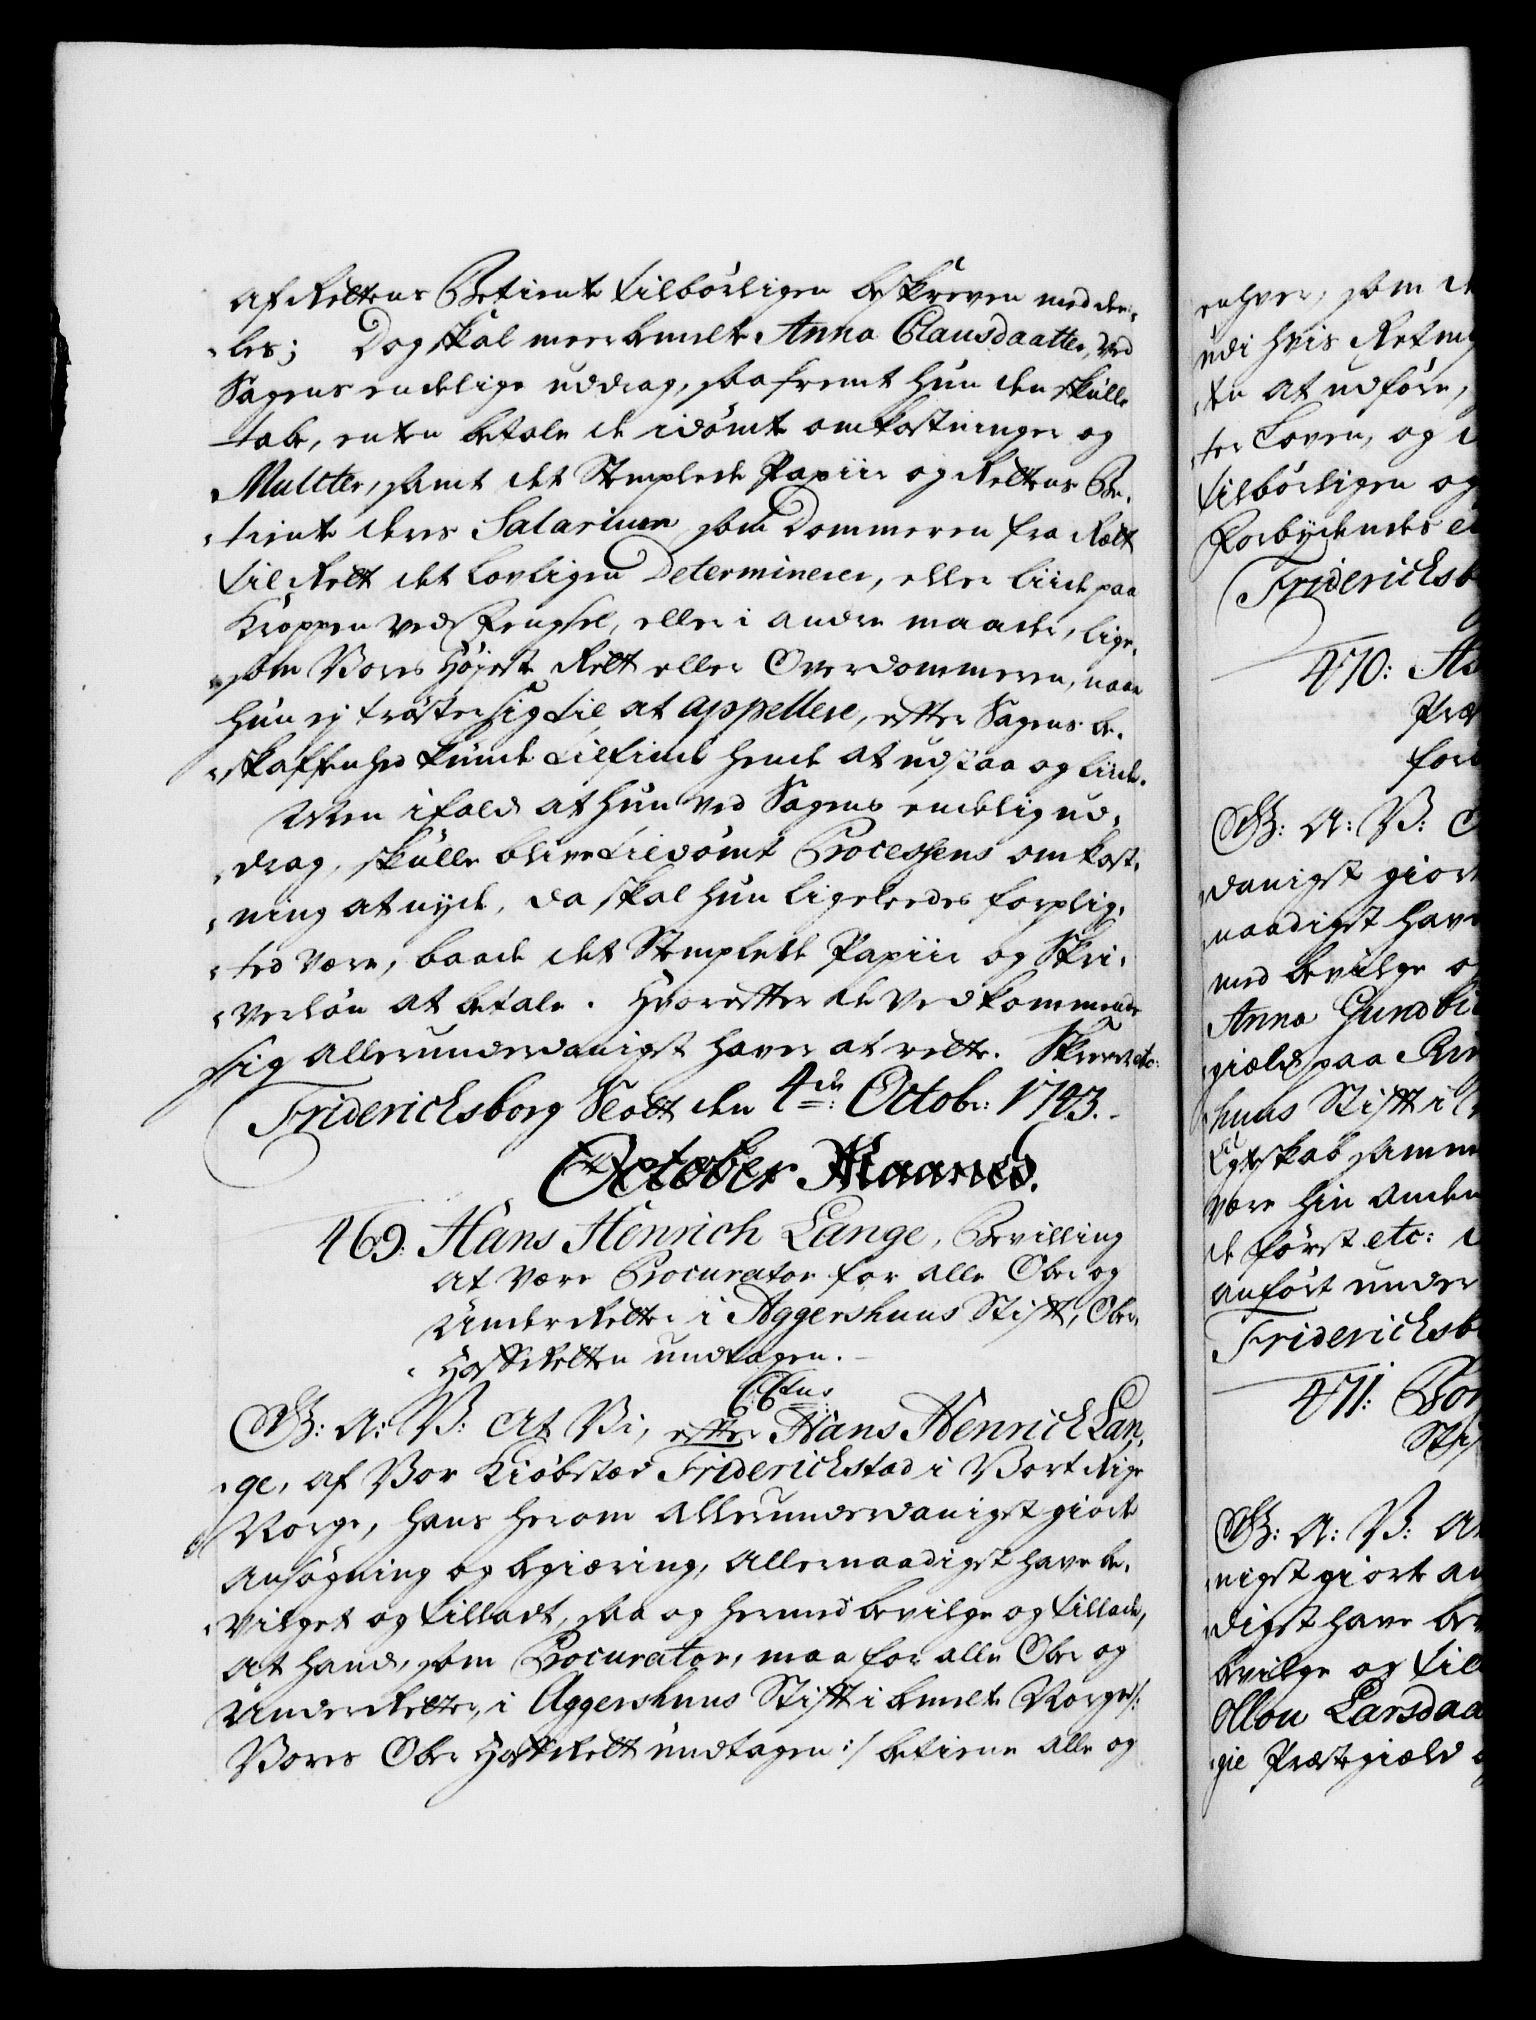 af Rettens Betiente tilbörligen beskreven meddee-
les; Dog skal meerbemelte Anna Clausdaatter, ved
Sagens endelige uddrag, saafremt hun den skulle
tabe, enten betale de idömte omkostninger og
Mulcter, samt det Stemplede Papiir og Rettens Be-
tiente deres Salarium, som Dommeren fra Rett
til Rett det lovligen Determinerer, eller liide paa
Kroppen ved Fengsel, eller i andre maader, lige-
som Vores Höjeste Rett eller Overdommeren, naar
hun ej tröster sig til at appellere, efter Sagens be-
skaffenhed kunde tilfinde hende at udstaa og liide.
Men ifald at hun ved Sagens endelig ud-
drag, skulle blive tildömt Processens omkost-
ning at nyde, da skal hun ligeledes forplig-
ted være, baade det Stemplede Papiir og Skri-
verlön at betale. Hvorefter de Vedkommende
sig allerunderdanigst haver at rette. Skrevet etc:
Friderichsborg Slott den 4de Octobr: 1743.
October Maaned.
469: Hans Henrich Lange, Bevilling
at være Procurator for alle Ober og
Under Retter i Aggershuus Stift, Ober-
Hoff Retten undtagen.
CCtus
G: A: V: At Vi, efter Hans Henrich Lan-
ge, af Vor Kiöbsted Friderichstad i Vort Rige
Norge, hans herom allerunderdanigst giorte
ansögning og begiæring, allernaadigst have be-
vilget og tilladt, saa og hermed bevilge og tillade,
at hand, som Procurator, maa for alle Ober og
Under Retter, i Aggershuus Stift i bemelte Norge /:
Vores Ober Hoff Rett undtagen :/ betiene alle og
enhver, som d
udi hvis Retteng
te at udföre,
ter Loven, og
tilbörligen og
Forbydendes
Friderichsb
470:
for
G: A: V:
danigst giort
naadigst have
med bevilge o
Anna Gundb
gield paa
huus Stift i
Egteskab samm
være hin anden
de först etc:
anfört under
Friderichsb
471:
Stif
G: A: V: A
nigst giorte an
digst have be
bevilge og til
Larsdaa
gie Præstegield